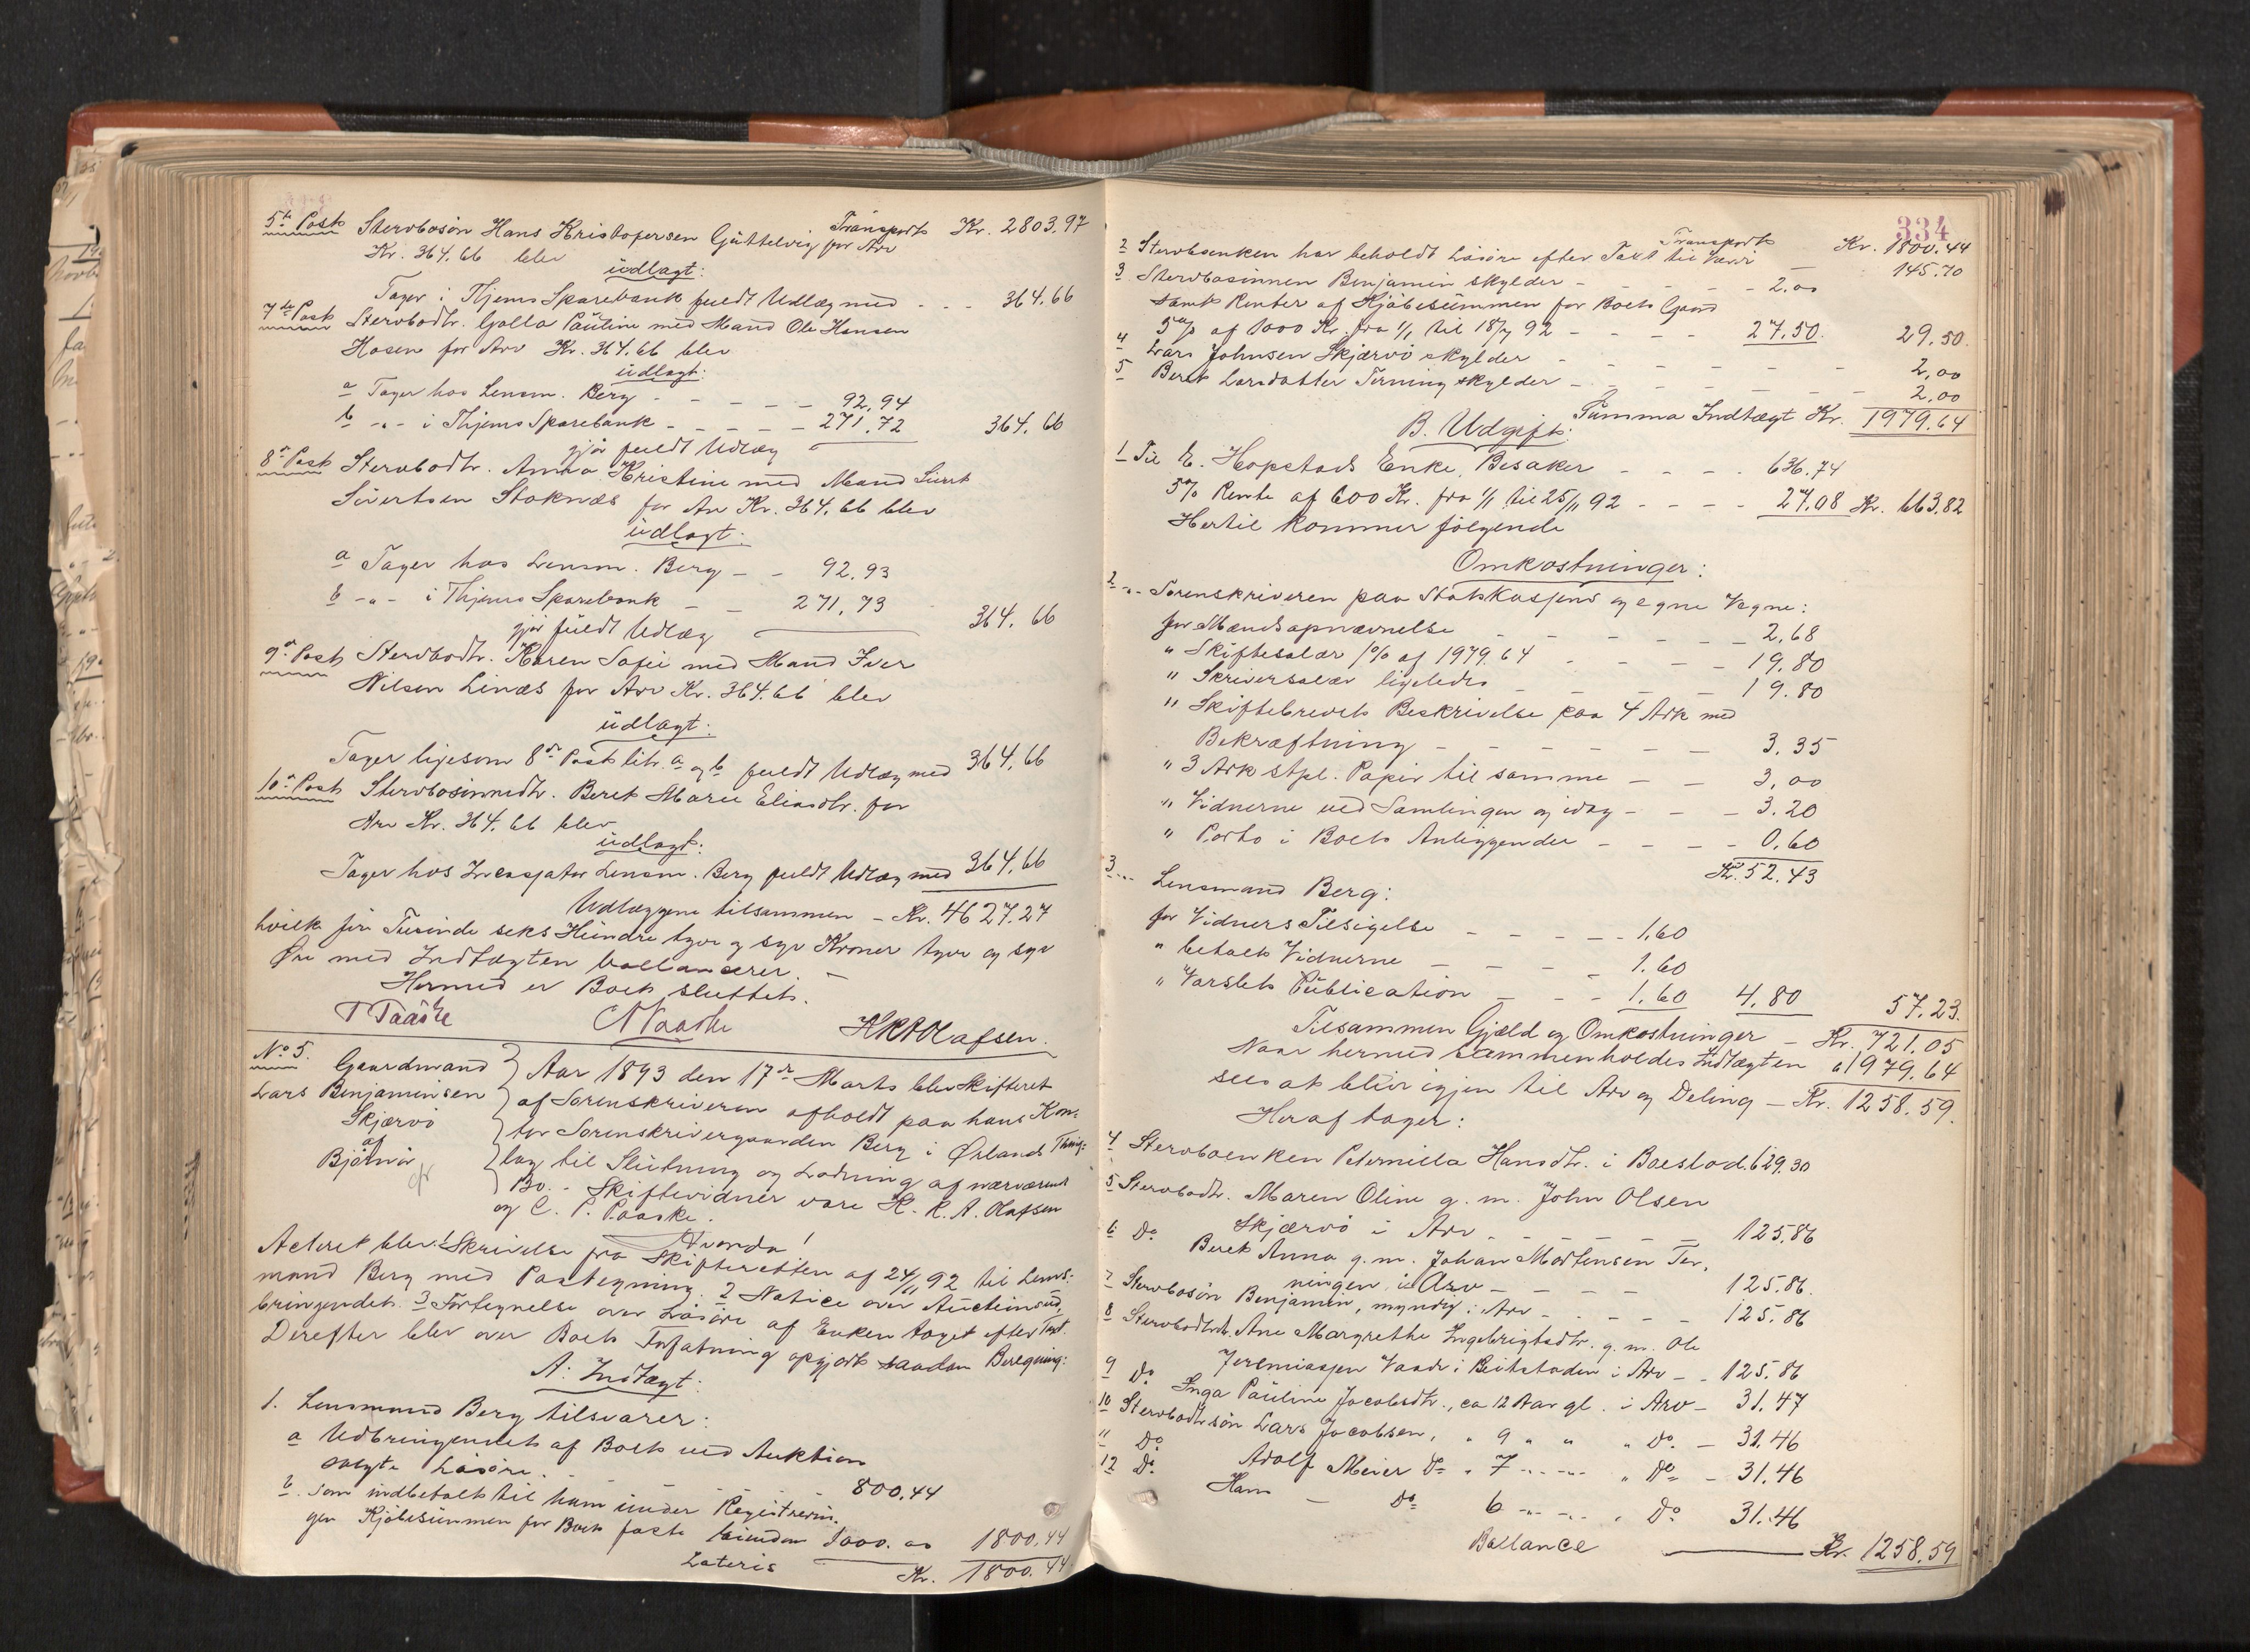 Transport Kr. 2803.97
5te Post Stervbosøn Hans Kristofersen Gjüttelvig for Arv
Kr. 364.66 blev
üdlagt:
Tager i Hjems Sparebank fuldt Udlæg med - - - 364.66
7de Post Stervbodtr. Golla Paüline med Mand Ole Hansen
Hosen for Arv Kr. 364.66 blev
üdlagt:
a Tager hos Lensm. Berg - - - - - 92,94
b -"- i Hjems Sparebank - - - - - 271,72 364.66
gjør fuldt Udlæg
8de Post Stervbodtr. Anna Kristine med Mand Siurt
Sivertsen Stoknæs for Arv Kr. 364.66 blev
üdlagt:
a Tager hos Lensm. Berg - - 92,93
b -"- i Hjems Sparebank - - 271,73 364.66
gjør füldt Udlæg
9de Post Stervbodtr. Karen Sofie med Mand Iver
Nilsen Linæs for Arv Kr. 364.66 blev
üdlagt:
Tager ligesom 8de Post litr. a og b fuldt Udlæg med 364,66
10de Post Stervbosønnedtr. Beret Marie Eliasdtr. for
Arv Kr. 364.66 blev
üdlagt:
Tager hos Incassator Lensm. Berg fuldt Udlæg med 364,66
Udlæggene tilsammen - Kr. 4627.27
hvilke fire Tusinde seks Hundre tyve og syv Kroner tyve og syv
Øre med Indtægten ballancerer. -
Hermed er Boet sluttet.
T Taaske C Paaske H K A Olafsen.
No 5. Gaardmand
Lars Benjaminsen
Skjærvö
af
Bjørnør
Aar 1893 den 17de Marts blev Skifteret
af Sorenskriveren afholdt paa hans Kon-
tor Sorenskrivergaarden Berg i Ørlands Thing-
lag til Slütning og Lodning af nærværende
Bo. - Skiftevidner vare H. K. A. Olafsen
og C. P. Paaske.
Tvende!
Acteret blev: 1 Skrivelse fra Skifteretten af 24/11 92 til Lens-
mand Berg med Paategning. 2 Notice over Auctionsüd-
bringendet. 3 Fortegnelse over Løsøre af Enken taget efter Taxt.
Derefter blev over Boets Forfatning opgjort saadan Beregning:
A: Indtægt:
1. Lensmand Berg tilsvarer:
a Udbringendet af Boets ved Auktion
solgte Løsøre. - - - 800,44
b. Som indbetalt til ham ünder Registrerin-
gen Kjøbesümmen for Boets faste Eiendom 1000.00 1800.44
Lateris Kr. 1800.44
334
Transport Kr. 1800.44
2 Stervboenken har beholdt Løsøre efter Taxt til Værdi - 145.70
3 Stervbosønnen Benjamin skylder - - - - - 2.00
samt Renter af Kjøbesümmen for Boets Gaard
5% af 1000 Kr. fra 1/1 til 18/7 92 - - - - 27.50. 29.50.
4 Lars Johnsen Skjærvö skylder - - - - - - - 2,00
5 Beret Larsdatter Terning skylder - - - - - - - 2.00
Summa Indtægt Kr. 1979.64
B. Udgift:
1 Til E. Hopstads Enke, Besaker - - - - 636.74
5% Rente af 600 Kr. fra 1/1 til 25/11 92 - - - - 27.08 Kr. 663.82
Hertil kommer følgende
Omkostninger:
2 -"- Sorenskriveren paa Statskassens og egne Vegne:
for Mændsopnævnelse - - - - - - 2,68
" Skiftesalær 1% af 1979.64 - - - - 19.80
" Skriversalær ligeledes - - - - 19.80
" Skiftebrevets Beskrivelse paa 4 Ark med
Bekræftning - - - - - - 3.35
" 3 Ark stpl. Papir til samme - - 3,00
" Vidnerne ved Samlingen og idag - - - 3.20
" Porto i Boets Anliggender - - - - 0.60
Kr. 52.43
3 ... Lensmand Berg:
for Vidners Tilsigelse - - - - - 1.60
" betalt Vidnerne - - - - - 1.60
" Varslets Püblication - - - 1.60 4.80 57.23.
Tilsammen Gjæld og Omkostninger - Kr. 721.05
Naar hermed sammenholdes Indtægten " 1979.64
sees at blive igjen til Arv og Deling - Kr. 1258.59.
Heraf tager:
4 Stervboenken Peternilla Hansdtr. i Boeslod. 629.30
5 Stervbodtr. Maren Oline g. m. John Olsen
Skjærvö i Arv - - - - - - 125,86
6 Do Beret Anna g. m. Johan Mortensen Ter-
ningen, i Arv - - - - 125.86.
7 Stervbosøn Benjamin, myndig i Arv - - - - - 125.86
8 Stervbodtrdtr. Ane Margrethe Ingebrigtsdtr. g. m. Ole
Jeremiassen Vaade i Beitstaden i Arv - - 125.86
9 Do Inga Paüline Jacobsdtr., ca 12 Aar gl. i Arv - 31.47
10 Stervbodtrsøn Lars Jacobsen, " 9 " " " Do. - 31.46
11 Do Adolf Meier Do " 7 -"- -"- " Do - 31.46
12 Do. Hans - Do 6 -"- -"- " Do 31.46
Ballance - Kr. 1258.59